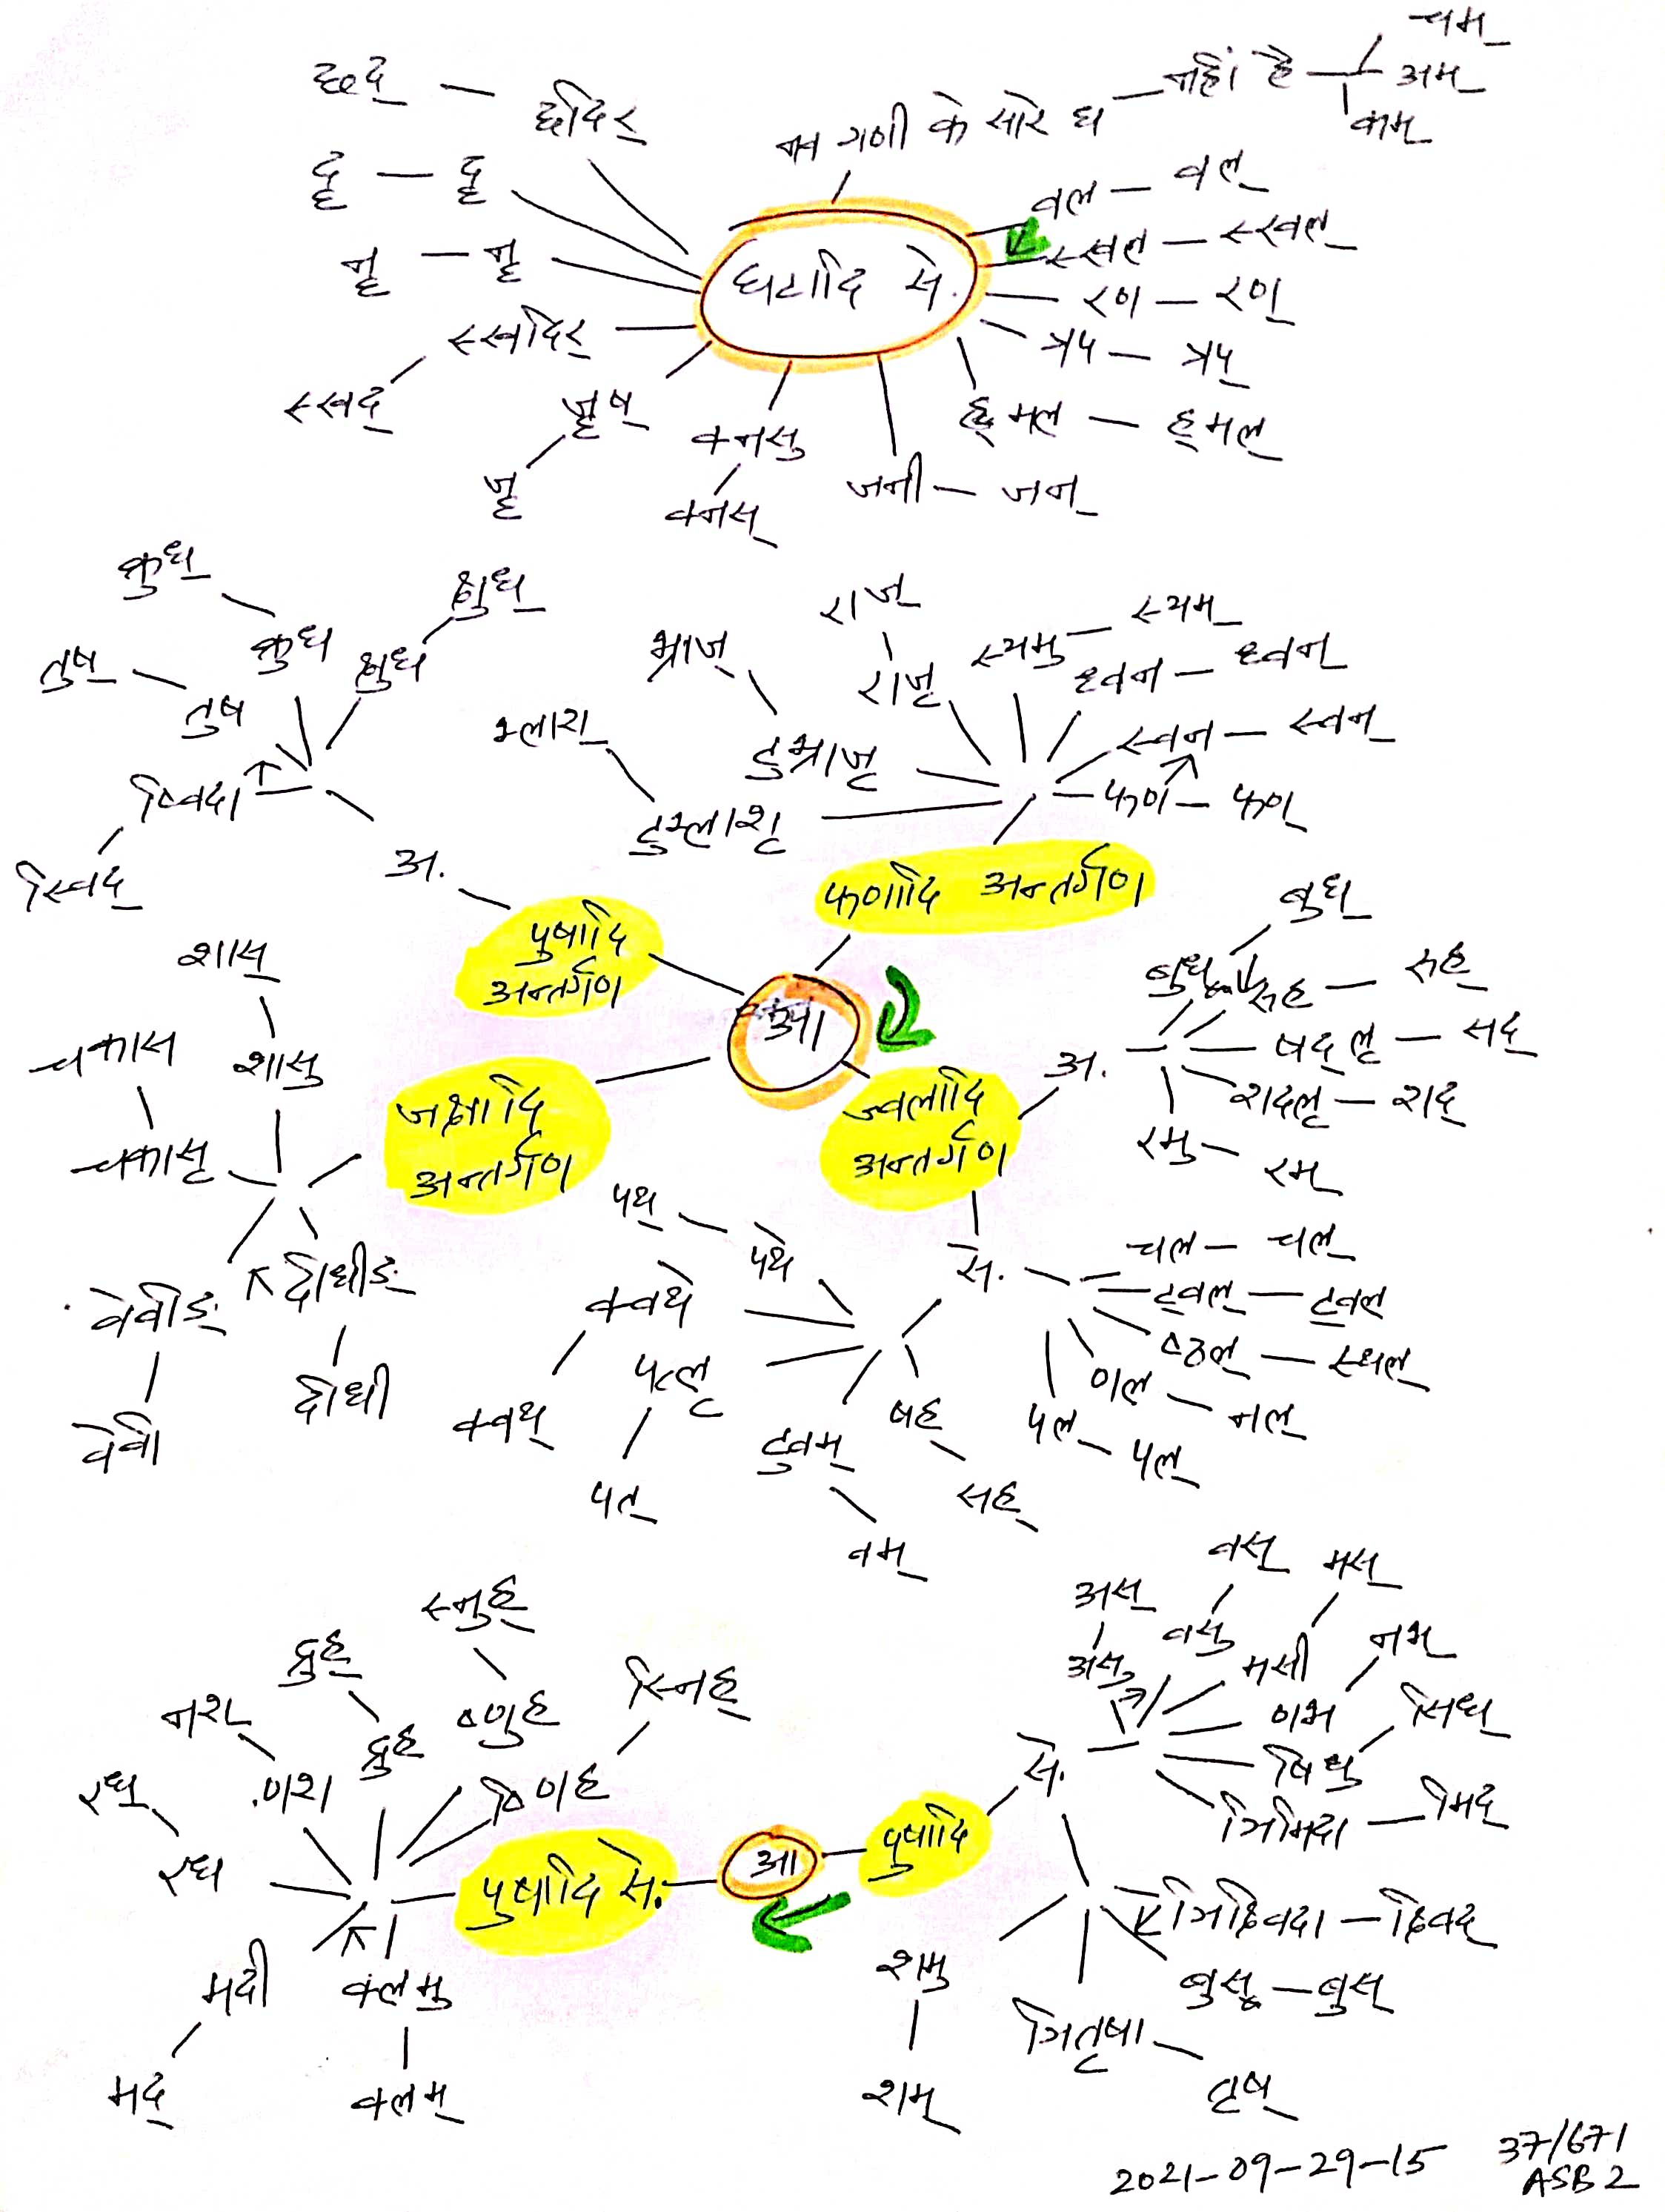 चम्
नहीं है — अम्
कम्
छद् — छदिर्
दॄ — दॄ
नॄ — नॄ
वल — वल्
स्खल — स्खल्
घटादि से.
रण — रण्
स्खदिर्
स्खद्
त्रप — त्रप्
ह्मल — ह्मल्
जॄष
जॄ
क्नसु
क्नस्
जनी — जन्
क्रुध्
क्रुध
क्षुध्
क्षुध
तुष्
तुष
ष्विदा
स्विद्
अ.
राज्
राजृ
स्यमु — स्यम्
ध्वन — ध्वन्
स्वन — स्वन्
फण — फण्
भ्राज्
टुभ्राजृ
भ्लाश्
टुभ्लाशृ
फणादि अन्तर्गण
पुषादि
अन्तर्गण
बुध्
बुध
सह — सह्
षद्लृ — सद्
शद्लृ — शद्
रमु — रम्
अ.
आ
शास्
शासु
चकास
चकासृ
जक्षादि
अन्तर्गण
ज्वलादि
अन्तर्गण
वेवीङ्
वेवी
दीधीङ्
दीधी
पथ् — पथे
क्वथे
क्वथ्
पत्लृ
पत्
से.
चल — चल्
ट्वल् — ट्वल्
ष्ठल् — स्थल्
णल — नल्
पल — पल्
टुवम्
वम्
षह्
सह्
स्नुह्
ष्णुह
द्रुह्
द्रुह
स्निह्
ष्णिह
नश्
णश
रध्
रध
पुषादि से.
आ
पुषादि
से.
अस्
असु
वस्
वसु
मस्
मसी
नभ्
णभ
सिध्
षिधु
ञिमिदा — मिद्
ञिक्ष्विदा — क्ष्विद्
बुस — बुस्
ञितृषा
तृष्
शमु
शम्
मदी
मद्
क्लमु
क्लम्
2021-09-29-15
37/671
ASB2